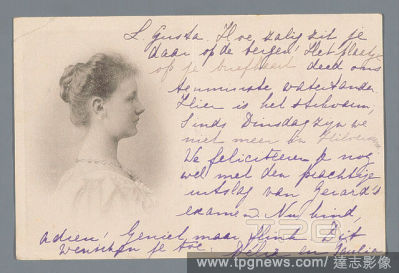 L Gusta, Hoe zalig zit je
daar op de bergen! Het plaatje
op je briefkaart deed ons
tenminste watertanden
Hier is het stikwarm,
Sinds Dinsdag zijn we
niet meer in Hilversum
We feliciteeren je nog
wel met den prachtige
uitslag van Gerard's
examen. Nu kind,
adieu! Geniet maar flink Dit
wenschen je toe: en
www.tpgnews.com / 達志影像